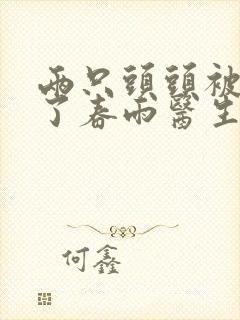 兩只頭頭被
了春雨醫生
何鑫